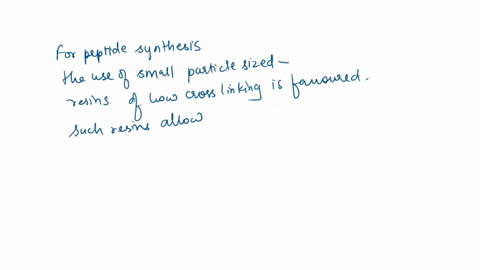 For peptide synthesis
the use of small particle sized-
resins of low cross linking is favoured.
such resins allow